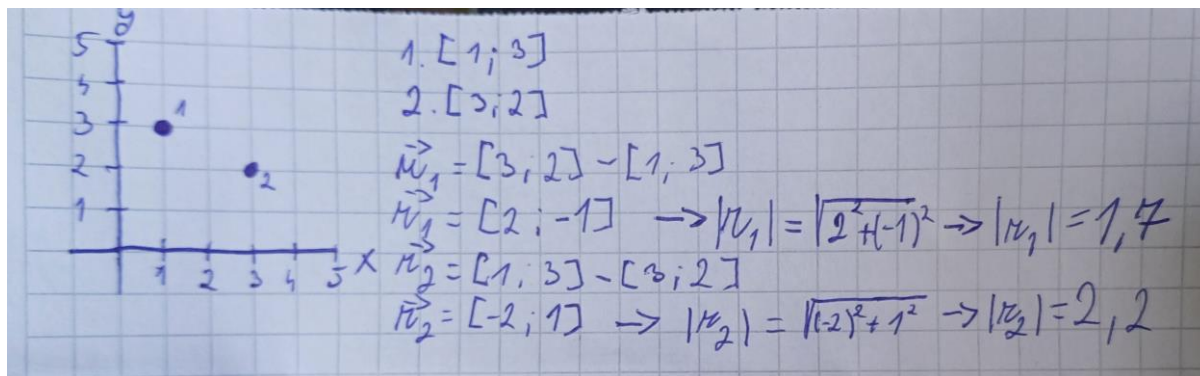 y
5
4
3
2
1
1
2
1 2 3 4 5 x
1. [1; 3]
2. [3; 2]
r⃗₁ = [3; 2] - [1; 3]
r⃗₁ = [2; -1] → |r₁| = √2²+(-1)² → |r₁| = 1,7
r⃗₂ = [1; 3] - [3; 2]
r⃗₂ = [-2; 1] → |r₂| = √(-2)²+1² → |r₂| = 2,2